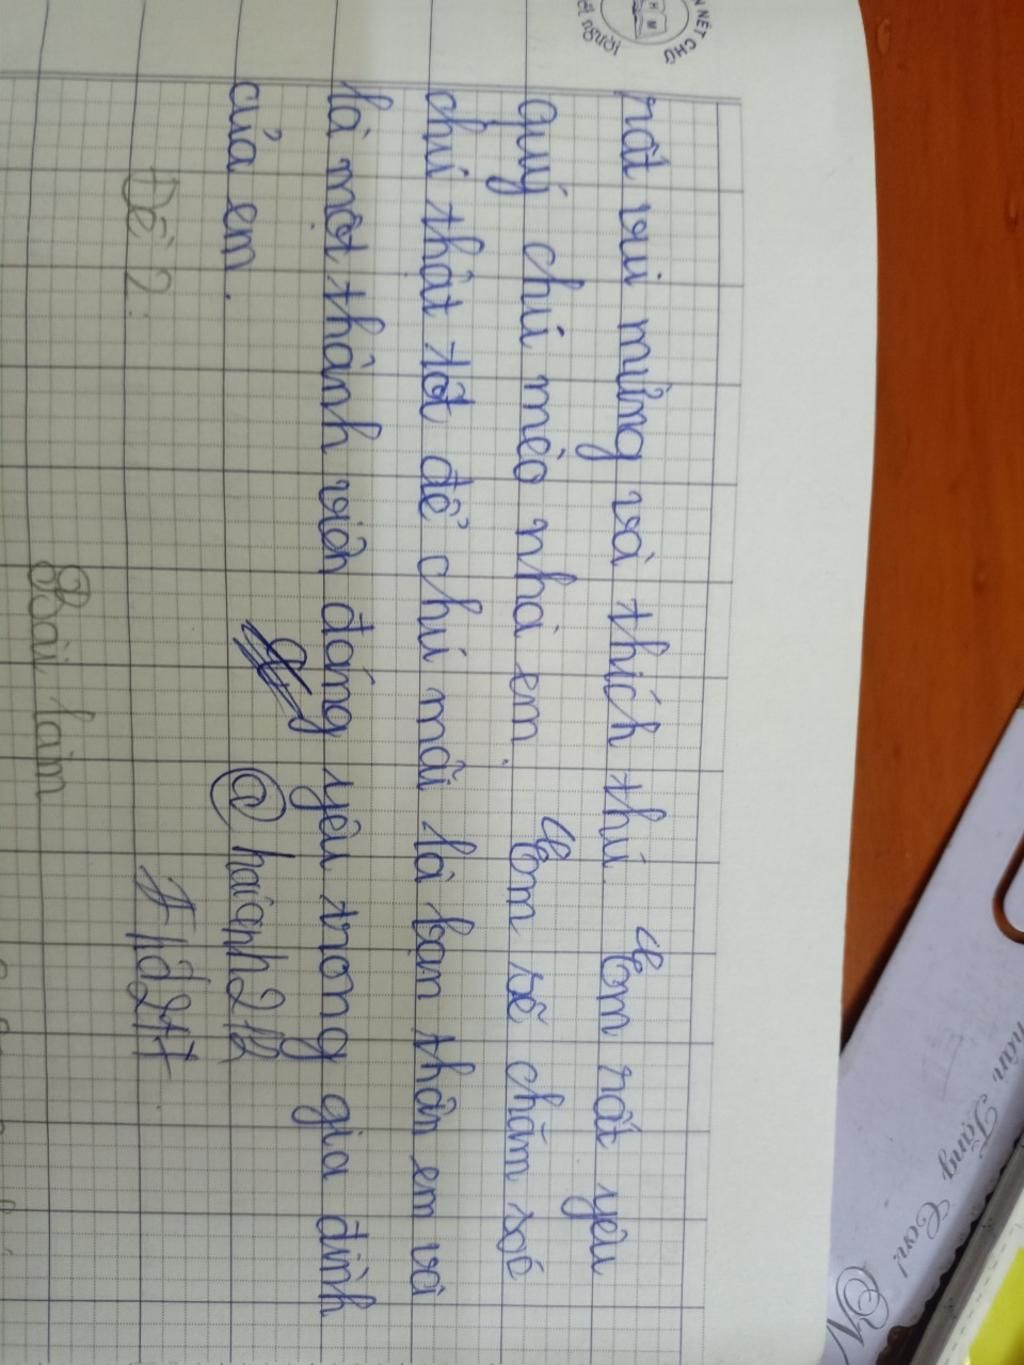 rất vui mừng và thích thú. Em rất yêu
quý chú mèo nhà em. Em sẽ chăm sóc
chú thật tốt để chú mãi là bạn thân em và
là một thành viên đáng yêu trong gia đình
của em.
@haianh212
Đề 2:
#hd277
Bài làm
NÉT CHỮ
NGƯỜI